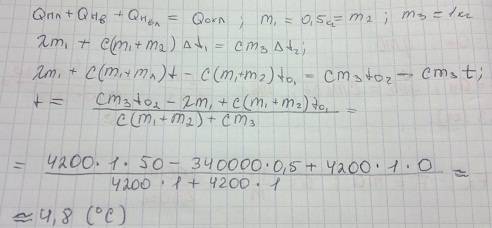 Qпл + Qнв + Qнвл = Qохл ; m₁ = 0,5кг = m₂ ; m₃ = 1кг
λm₁ + c(m₁+m₂) Δt₁ = cm₃ Δt₂;
λm₁ + c(m₁+m₂)t - c(m₁+m₂)t₀₁ = cm₃t₀₂ - cm₃t;
t = (cm₃t₀₂ - λm₁ + c(m₁+m₂)t₀₁) / (c(m₁+m₂) + cm₃) =
= (4200·1·50 - 340000·0,5 + 4200·1·0) / (4200·1 + 4200·1) ≈
≈ 4,8 (°C)